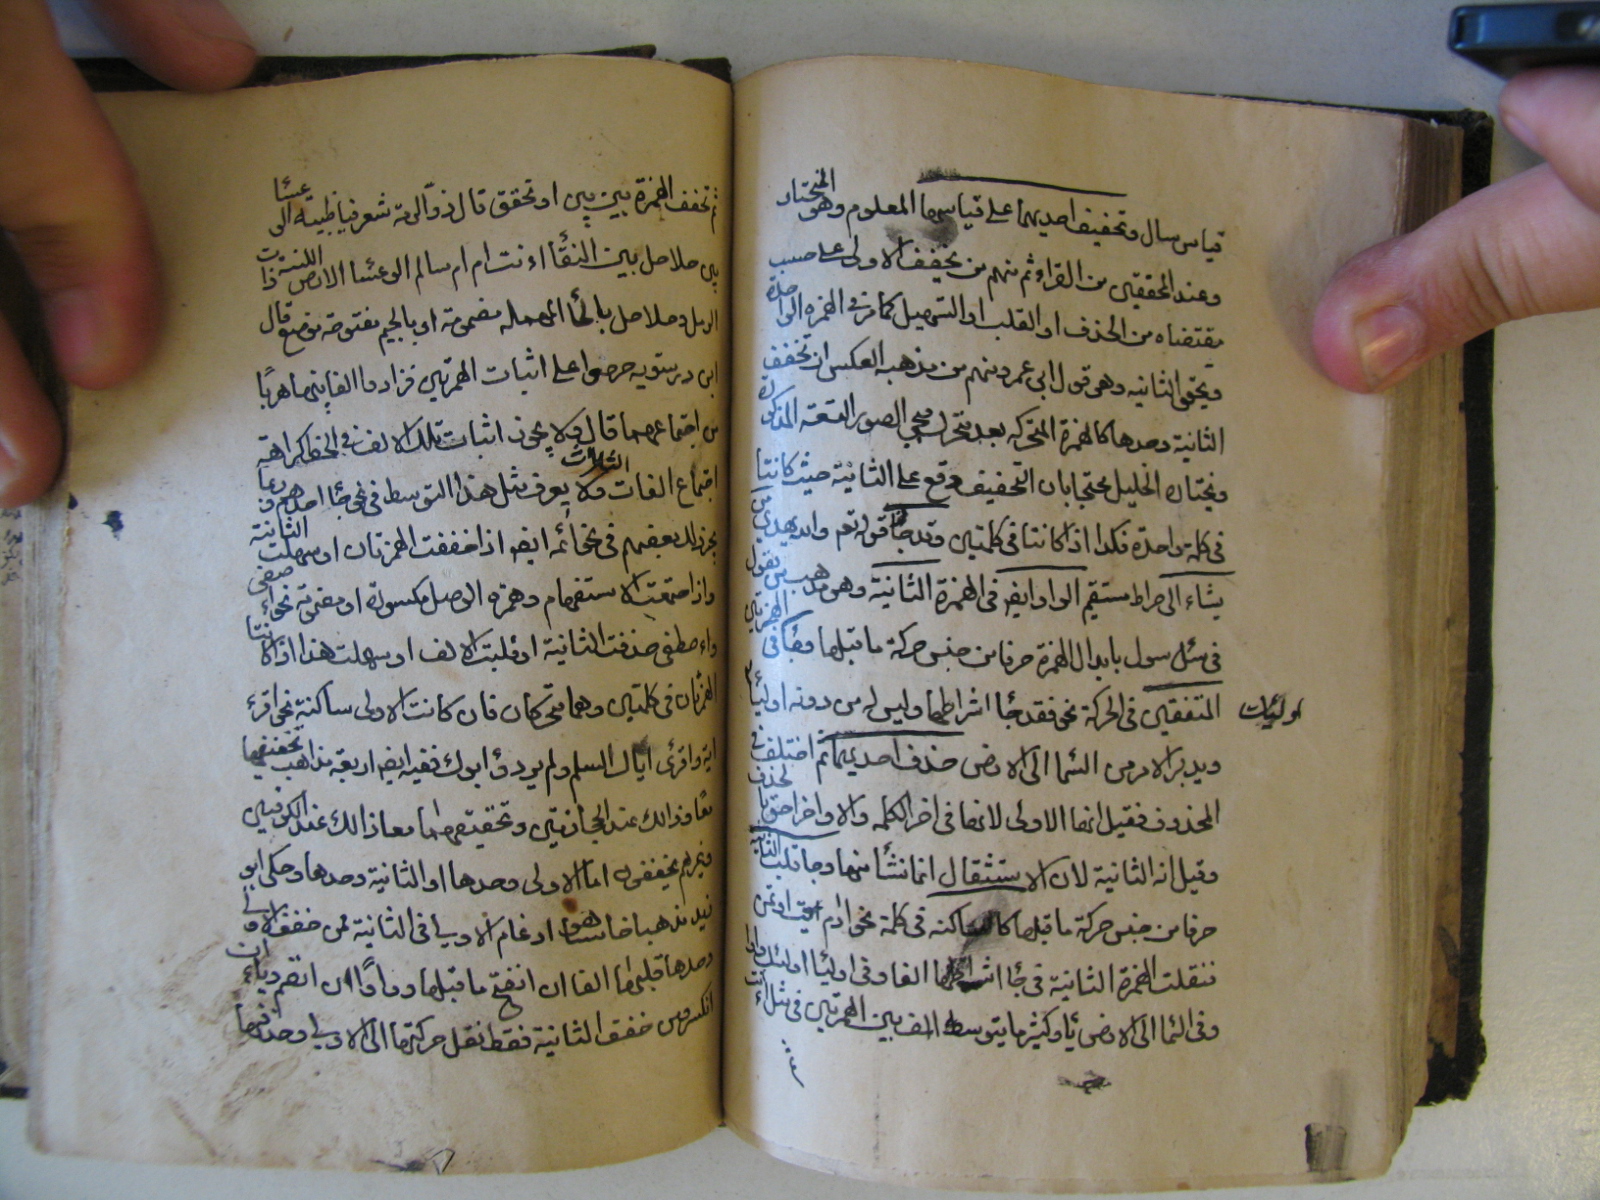 قياس سال وتخفيف احديهما على قياسها المعلوم وهو المختار
وعند المحققين من القراء ثم منهم من يخفف الاولى على حسب
مقتضاه من الحذف او القلب او التسهيل كما مر في الهمزه الواحدة
ويحقق الثانيه وهو قول ابي عمر ومنهم من مذهبه العكس ان تخفف
الثانية وحدها كالهمزة المتحركه بعد متحرك في الصور التسعه المذكورة
ويختاره الخليل محتجا بان التخفيف وقع على الثانية حيث كانتا
في كلمة واحدة فكذا اذا كانتا في كلمتين وقد جا في قوله تعم والله يهدي من
يشاء الى صراط مستقيم الواو ايضا في الهمزة الثانية وهو مذهب من يقول
في سئل سول بابدال الهمزة حرفا من جنس حركة ما قبلها وجا في الهمزتين
المتفقين في الحركة نحو فقد جا اشراطها وليس له من دونه اوليا
اوليات
ويدبر الامر من السما الى الارض حذف احديهما ثم اختلف في
المحذوف فقيل انها الاولى لانها في اخر الكلمه والاواخر احق بالحذف
وقيل انه الثانية لان الاستثقال انما نشأ منها وجا قلب الثانيه
حرفا من جنس حركة ما قبلها كالساكنه في كلمة نحو ادم ايت اوتمن
فنقلت الهمزة الثانية في جا اشراطها الفا وفي اوليا اولئك واوا
وفي السما الى الارض يأ وكثيرا ما يتوسط الف بين الهمزتين في مثل أانت
ثم تخفف الهمزة بين بين او تحقق قال ذو الرمة شعر فيا ظبية الوعسا
بين جلاجل بين النقا اءنت ام ام سالم الوعسا الارض اللينة ذات
الرمل وجلاجل بالحا المهمله مضمومة او بالجيم مفتوحة موضع قال
ابن درستويه حرصوا على اثبات الهمزتين فزادوا الفا بينهما هربا
من اجتماعهما قال ولا يجوز اثبات تلك الالف في الخط كراهة
اجتماع الفات الثلاث ولا يعرف مثل هذا التوسط في نحو جا احدهم وربما
يجوز ذلك بعضهم في نحو ائمه ايضا اذا خففت الهمزتان او سهلت الثانية
واذا اجتمعت الاستفهام وهمزه الوصل مكسورة او مضمومة نحو
واء صطفى حذفت الثانية او قلبت الالف او سهلت هذا اذا كانتا
الهمزتان في كلمتين وهما متحركان فان كانت الاولى ساكنة نحو اقرء
اية واقرئ اباك السلم ولم يردؤ ابوك ففيه ايضا اربعة مذاهب تخفيفهما
معا وذالك عند الحجازيين وتحقيقهما معا ذالك عند الكوفيين
وغيرهم يخففون اما الاولى وحدها او الثانية وحدها وحكى ابو
زيد مذهبا خامسا وهو ادغام الاولى في الثانية فمن خفف الاولى
وحدها قلبها الفا ان انفتح ما قبلها وواوا ان انضم وياء ان
انكسر ومن خفف الثانية فقط نقل حركتها الى الاولى وحذفها